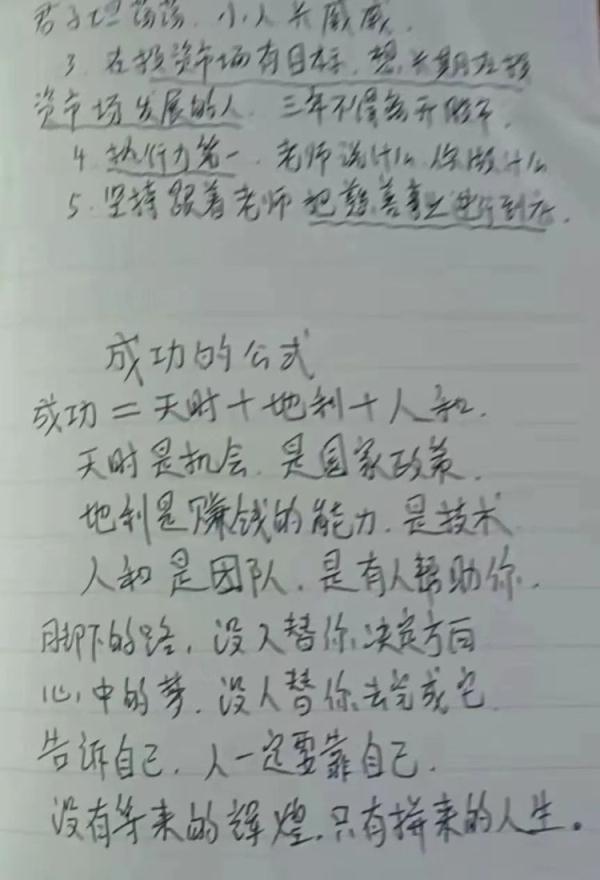 君子坦荡荡，小人长戚戚.
3. 在投资市场有目标，想长期在投
资市场发展的人. 三年不得离开股市.
4. 执行力第一. 老师说什么你做什么
5. 坚持跟着老师把慈善事业进行到底.
成功的公式
成功=天时+地利+人和.
天时是机会. 是国家政策.
地利是赚钱的能力. 是技术
人和是团队. 是有人帮助你.
脚下的路, 没人替你决定方向
心中的梦. 没人替你去完成它
告诉自己. 人一定要靠自己.
没有等来的辉煌. 只有拼来的人生。